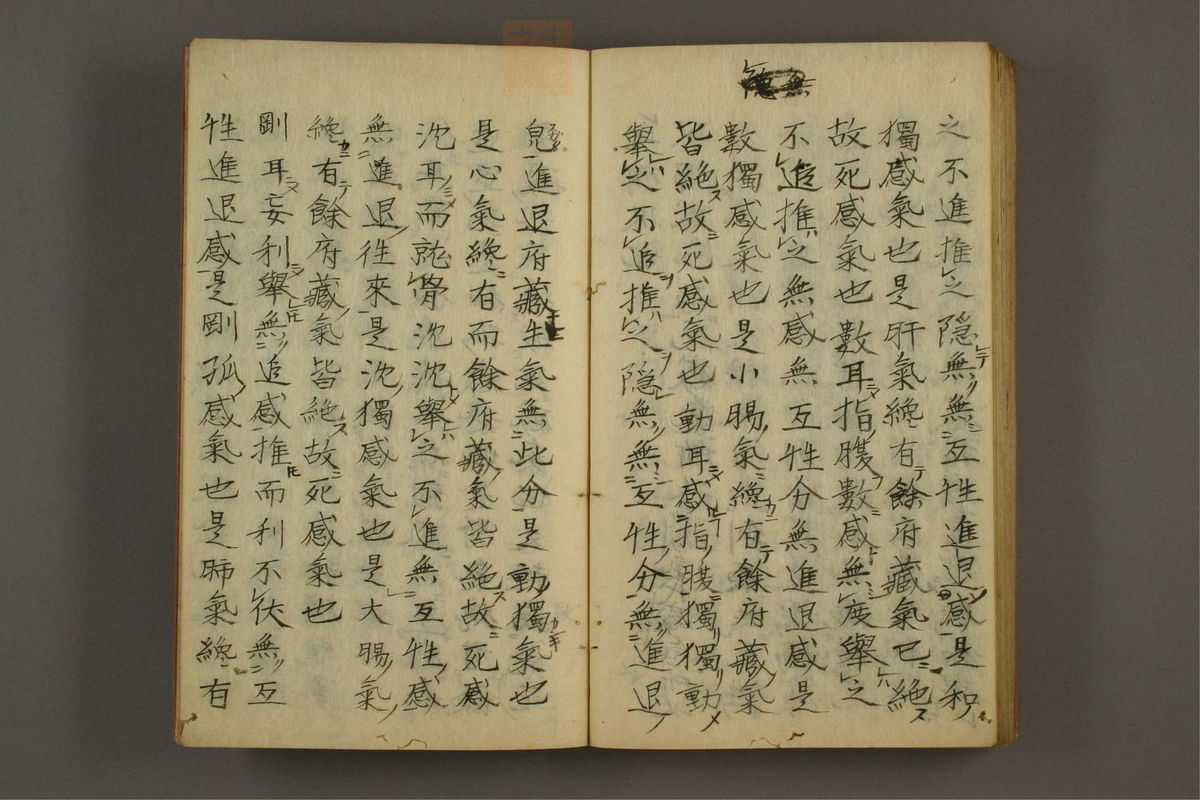 之不進推之隠無無互性進退感是和
獨感氣也是肝氣纔有餘府藏氣已絶
故死感氣也數耳指腠數感無度舉之
不追推之無感無互性分無進退感是
數獨感氣也是小腸氣纔有餘府藏氣
皆絶故死感氣也動耳感指腠獨獨動
舉之不追推之隠無無互性分無進退
進退府藏生氣無此分是動獨氣也
是心氣纔有而餘府藏氣皆絶故死感
沈耳而就骨沈沈舉之不進無互性感
無進退往來是沈獨感氣也是大腸氣
纔有餘府藏氣皆絶故死感氣也
剛耳妄利舉無追感推而利不伏無互
性進退感是剛孤感氣也是肺氣纔有